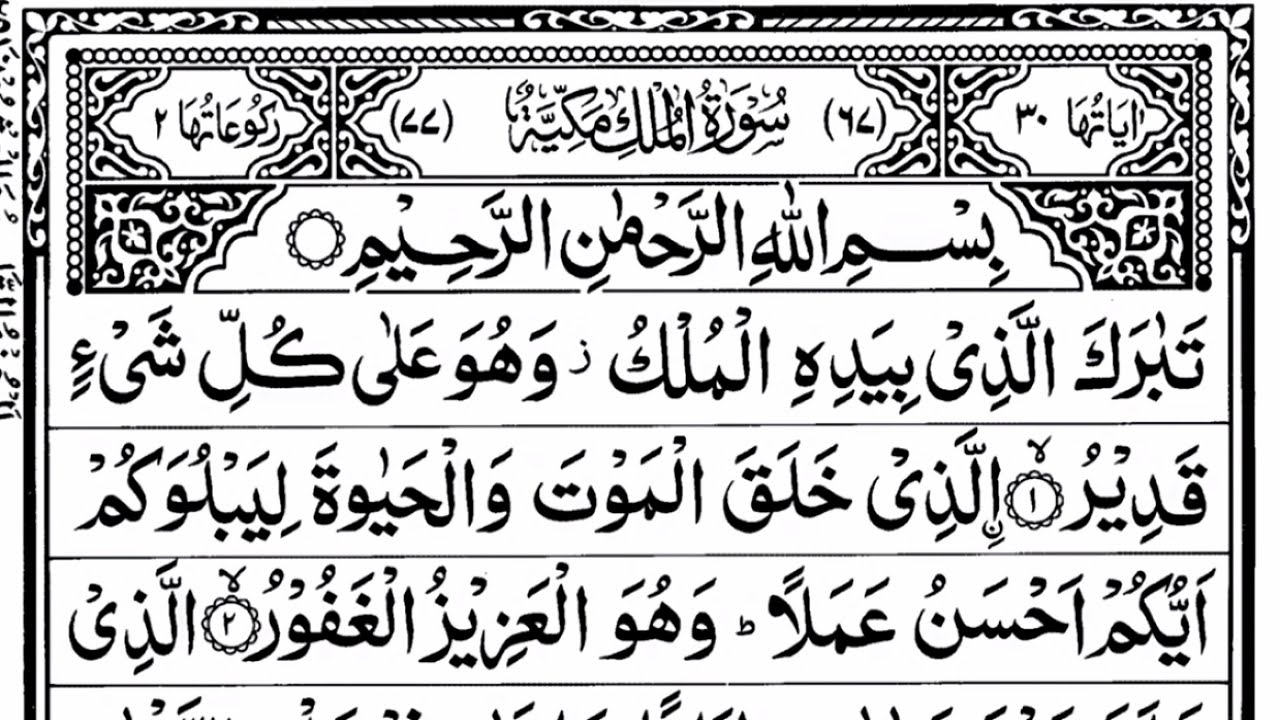 اٰيَاتُهَا ٣٠ (٦٧) سُوْرَةُ الْمُلْكِ مَكِّيَّةٌ (٧٧) رَكُوْعَاتُهَا ٢
بِسْمِ اللّٰهِ الرَّحْمٰنِ الرَّحِيْمِ
تَبٰرَكَ الَّذِیْ بِيَدِهِ الْمُلْكُ ز وَهُوَ عَلٰی كُلِّ شَیْءٍ
قَدِيْرُ ۙ﴿١﴾ اۨلَّذِیْ خَلَقَ الْمَوْتَ وَالْحَيٰوةَ لِيَبْلُوَكُمْ
اَيُّكُمْ اَحْسَنُ عَمَلًا ط وَهُوَ الْعَزِيْزُ الْغَفُوْرُ ۙ﴿٢﴾ الَّذِیْ